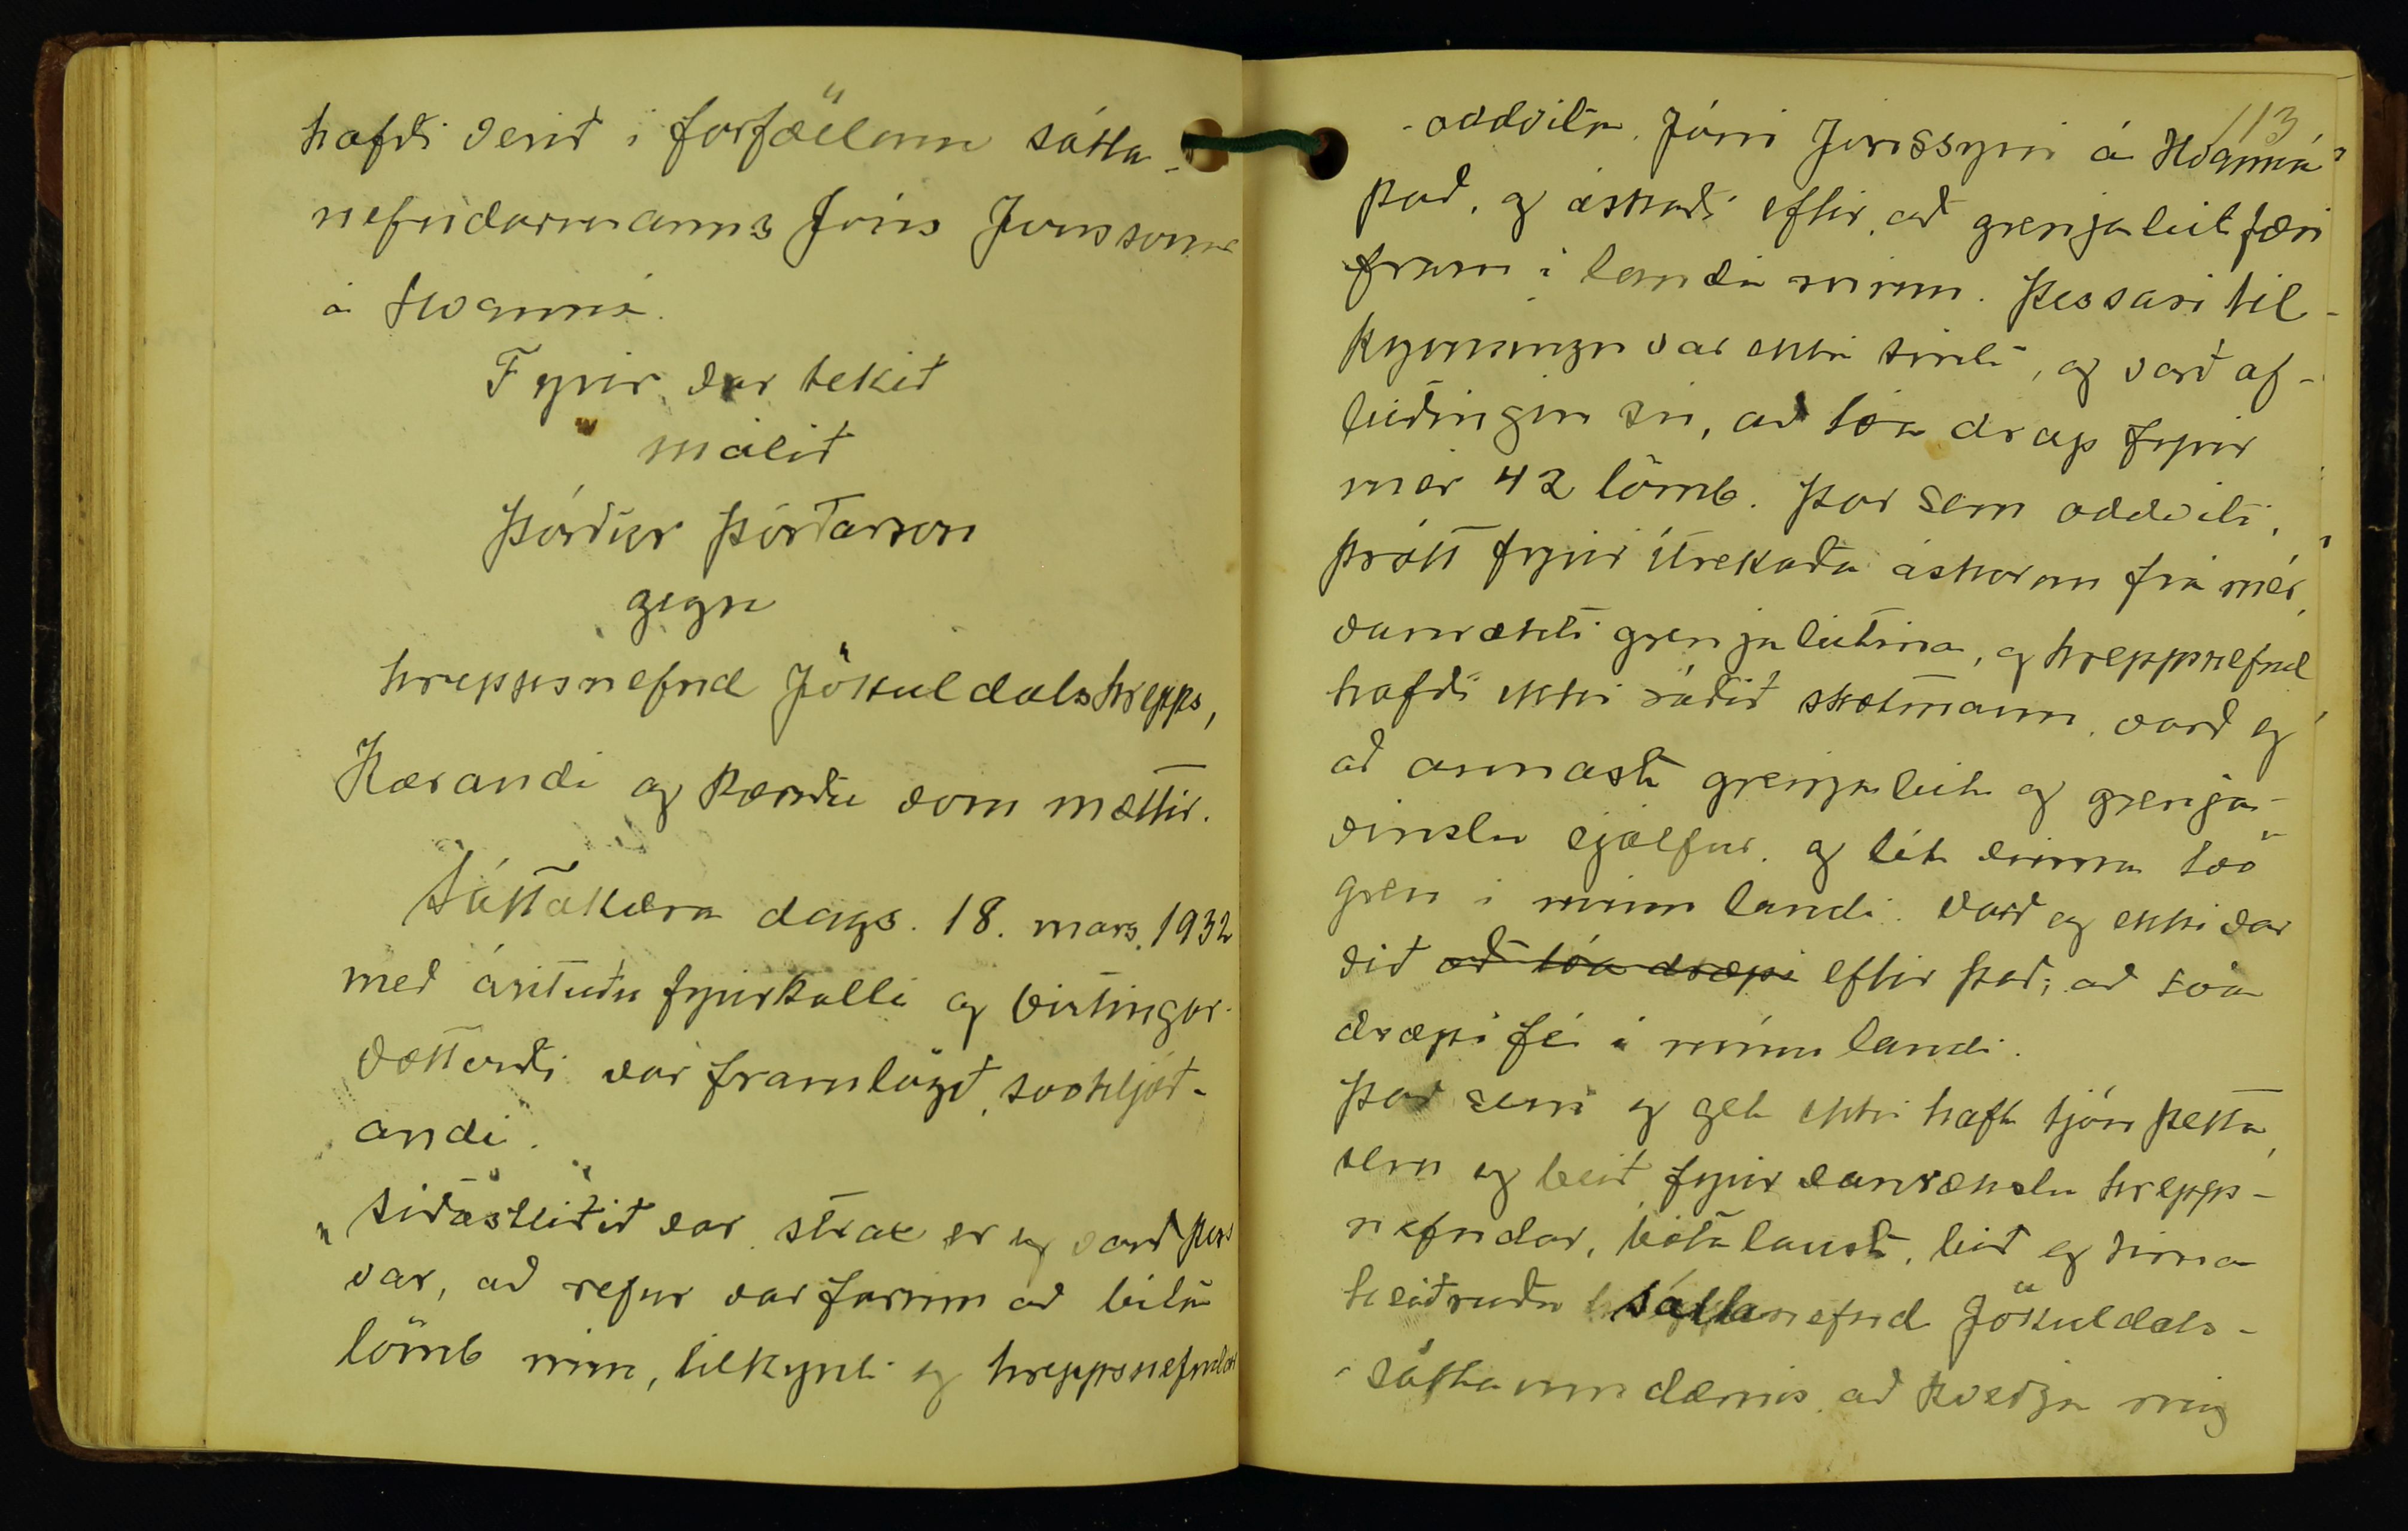 hafði verið í forföllum sátta-
nefndarmanns Jóns Jonssonar
á Hvanná.
Fyrir var tekið
málið
Þórður Þórðarson
gegn
hreppsnefnd Jökuldalshrepps,
Kærandi og kærðu vorn mættir.
Sáttakæra dags. 18. mars. 1932
með árituðu fyrirkalli og birtingar-
vottorði var framlögð, svohljóð-
andi.
„Síðastliðið vor strax er eg varð þess
var, að refur var farinn að bíta
lömb mín, tilkynti eg hreppsnefndar
113
-oddvita. Jóni Jonssyni á Hvanná
það, og áskoraði eftir, að grenjaleit færi
fram í landi mínu. Þessari til-
kynningu var ekki sint, og varð af-
leiðingin sú, að tóa drap fyrir
mér 42 lömb. Þar sem oddviti,
þrátt fyrir ítrekaða áskorun frá mér,
vanrækti grenjaleitina, og hreppsnefnd
hafði ekki ráðið skotmann, varð eg
að annast grenjaleit og grenja-
vinslu sjálfur, og lét vinna tvö
gren í mínu landi. Varð eg ekki var
við að tóa dræpi eftir það, að tóa
dræpi fé í mínu landi.
Þar sem eg get ekki haft tjón þetta,
sem eg beið fyrir vanrækslu hrepps-
nefndar, bótalaust, bið eg hina
heiðruðu sáttanefnd Jökuldals-
sáttaumdæmis, að kveðja mig